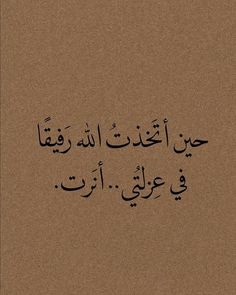 حين أتَخذتُ الله رَفيقًا
في عِزلتُي .. أنَرت.